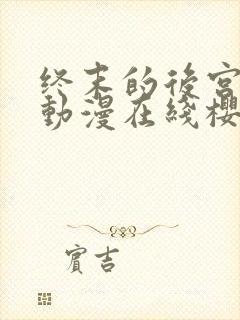 终末的後宮
動漫在綫櫻
賓吉